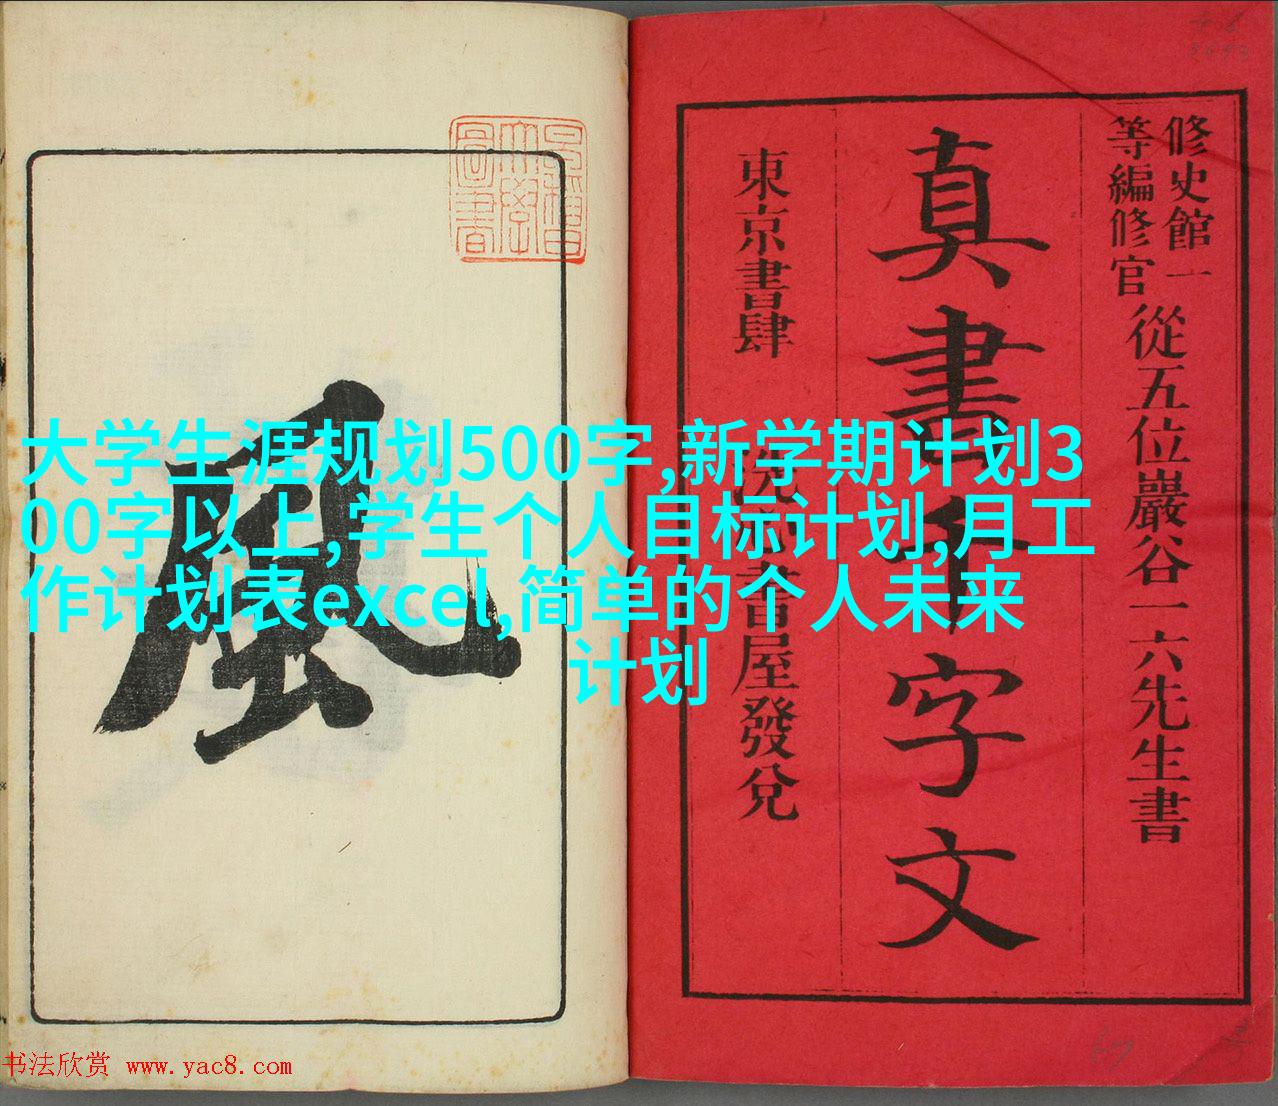 修史館一
等編修官
從五位巖谷一六先生書
真書千字文
東京書肆
書屋發兌
早稻田
大學
圖書
風
大学生涯规划500字,新学期计划3
00字以上,学生个人目标计划,月工
作计划表excel,简单的个人未来
计划
书法欣赏 www.yac8.com